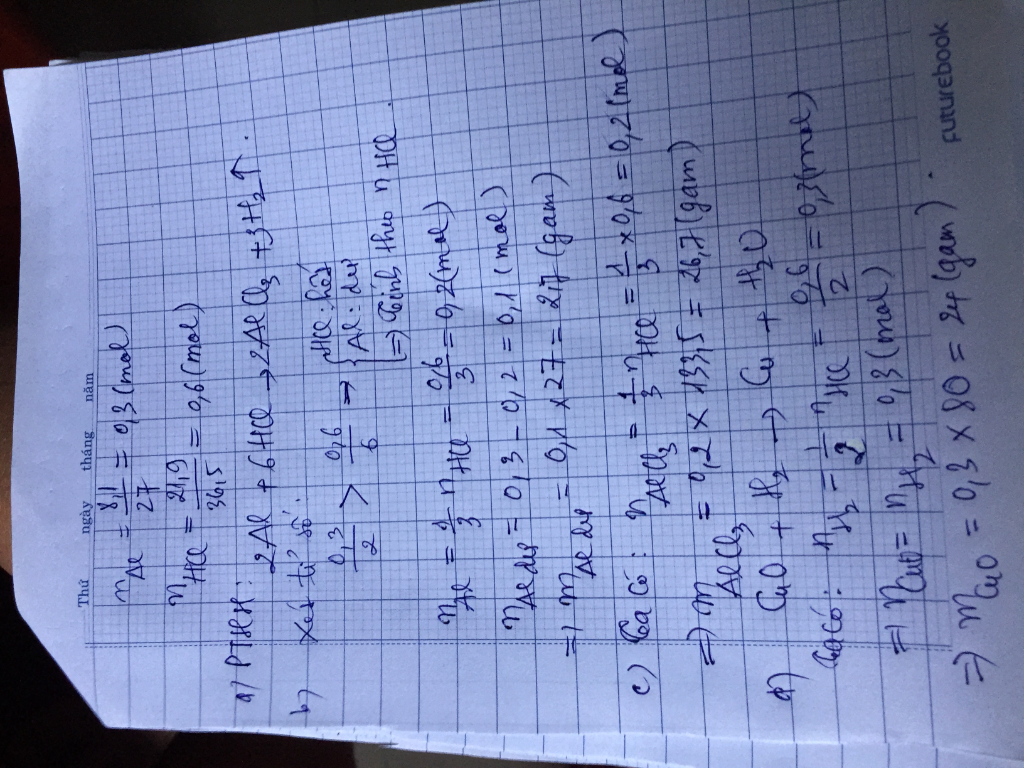 Thứ ngày tháng năm
nAl = 8,1/27 = 0,3 (mol)
nHCl = 21,9/36,5 = 0,6 (mol)
a) PTHH:
2Al + 6HCl → 2AlCl3 + 3H2↑.
b) Xét tỉ số:
0,3/2 > 0,6/6 => { HCl: hết
Al: dư
=> Tính theo nHCl.
nAl = 1/3 nHCl = 0,6/3 = 0,2 (mol)
nAl dư = 0,3 - 0,2 = 0,1 (mol)
=> mAl dư = 0,1 x 27 = 2,7 (gam)
c) Ta có: nAlCl3 = 1/3 nHCl = 1/3 x 0,6 = 0,2 (mol)
=> mAlCl3 = 0,2 x 133,5 = 26,7 (gam)
d) CuO + H2 → Cu + H2O
Ta có: nH2 = 1/2 nHCl = 0,6/2 = 0,3 (mol)
=> nCuO = nH2 = 0,3 (mol)
=> mCuO = 0,3 x 80 = 24 (gam).
FUTUREBOOK